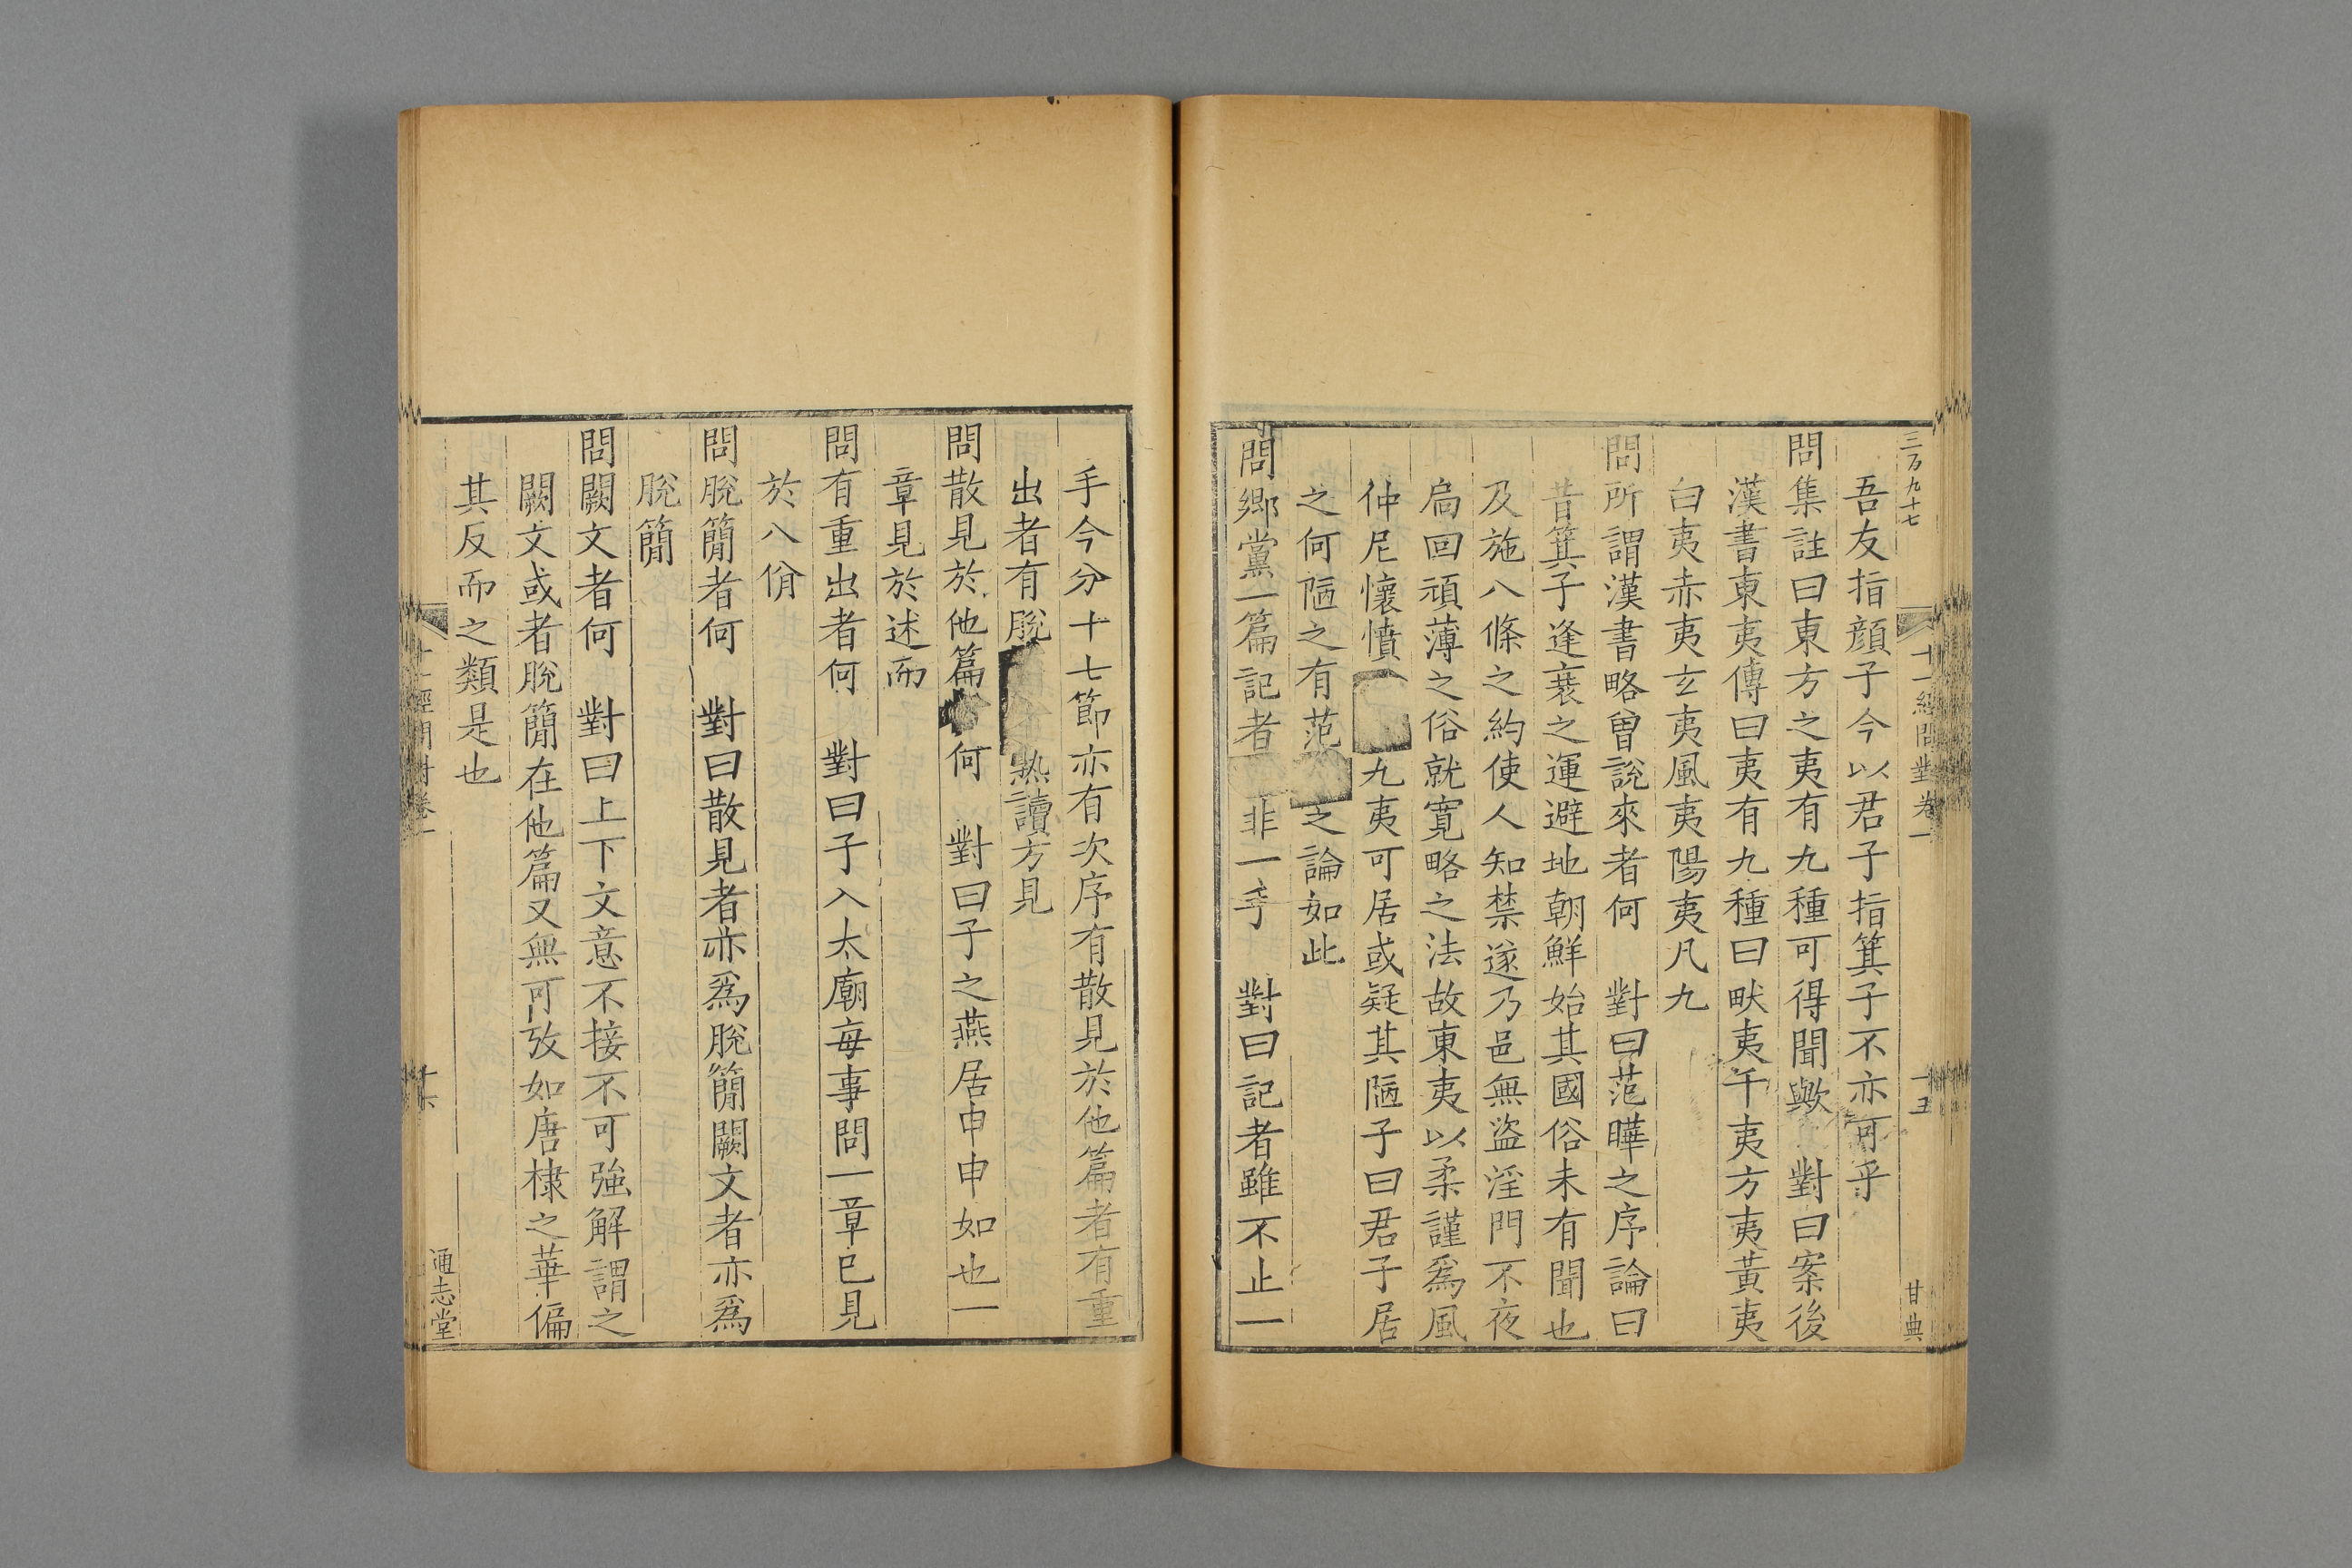 三万九十七
十一經問對卷一
十五
甘典
吾友指顔子今以君子指箕子不亦可乎
問集註曰東方之夷有九種可得聞歟 對曰案後
漢書東夷傳曰夷有九種曰畎夷干夷方夷黃夷
白夷赤夷玄夷風夷陽夷凡九
問所謂漢書略曽說來者何 對曰范曄之序論曰
昔箕子逢衰之運避地朝鮮始其國俗未有聞也
及施八條之約使人知禁遂乃邑無盜淫門不夜
扃回頑薄之俗就寛略之法故東夷以柔謹爲風
仲尼懷憤 九夷可居或疑其陋子曰君子居
之何陋之有范 之論如此
問鄉黨一篇記者 非一手 對曰記者雖不止一
手今分十七節亦有次序有散見於他篇者有重
出者有脫 熟讀方見
問散見於他篇 何 對曰子之燕居申申如也一
章見於述而
問有重出者何 對曰子入太廟每事問一章已見
於八佾
問脫簡者何 對曰散見者亦爲脫簡闕文者亦爲
脫簡
問闕文者何 對曰上下文意不接不可強解謂之
闕文或者脫簡在他篇又無可攷如唐棣之華偏
其反而之類是也
十一經問對卷一
十六
通志堂